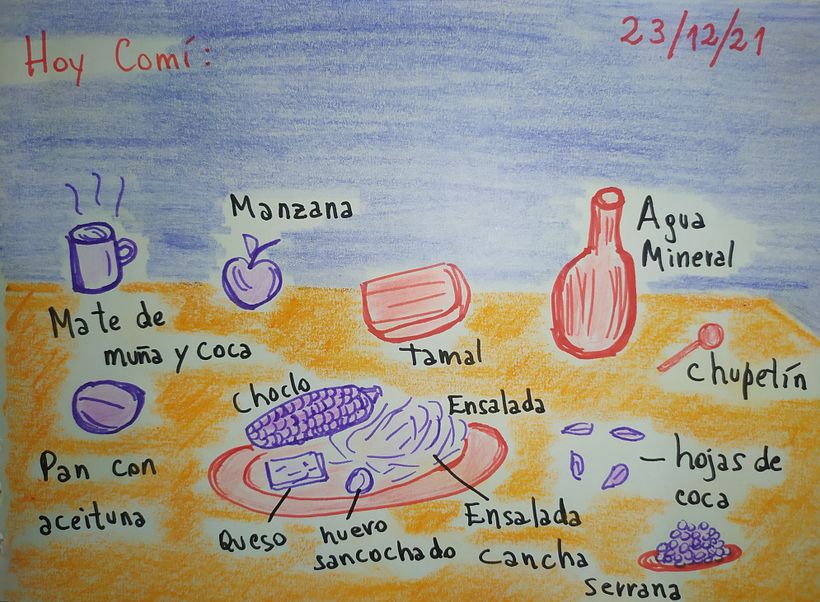 Hoy Comí:
23/12/21
Manzana
Agua
Mineral
Mate de
muña y coca
tamal
chupetín
Choclo
Ensalada
Pan con
aceituna
hojas de
coca
Queso
huevo
sancochado
Ensalada
Cancha
Serrana